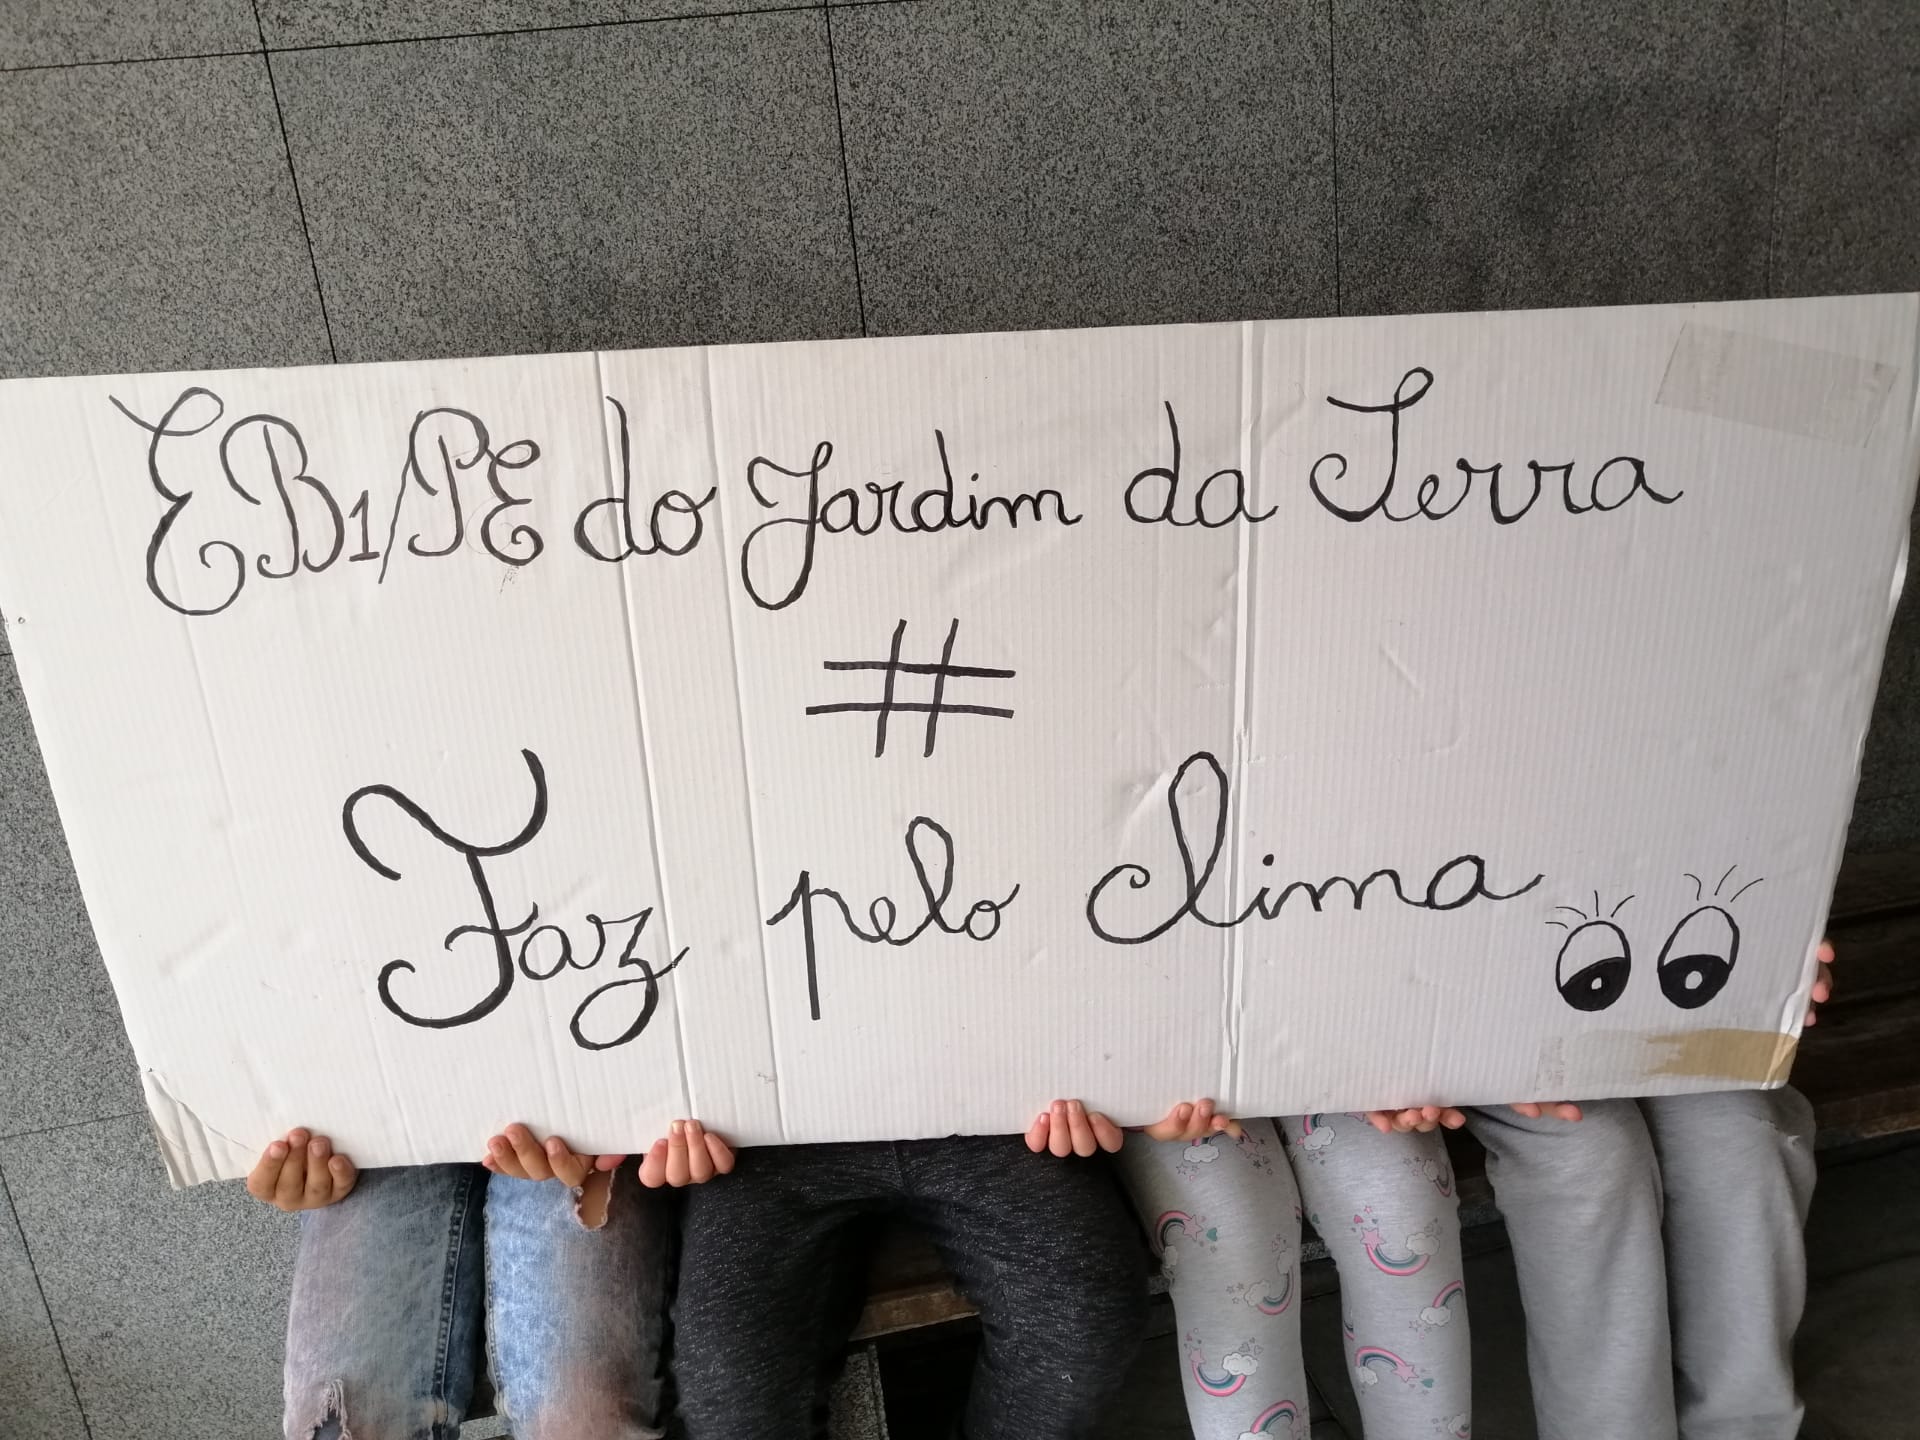 EB1/PE do Jardim da Terra
#
Faz pelo clima